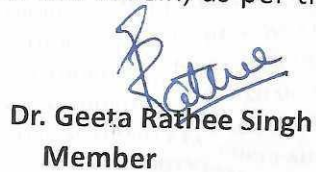 as per t
Rathee
Dr. Geeta Rathee Singh
Member